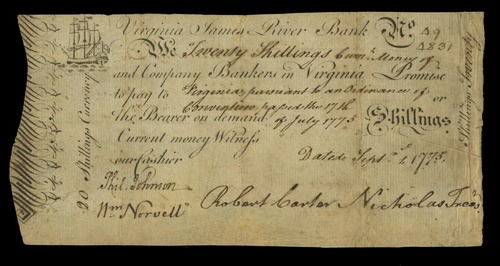 Virginia James River Bank No. 49
4831
We Twenty Shillings Curr.t Money of
and Company Bankers in Virginia Promise
to pay to Virginia, pursuant to an Ordinance of
Convention passed the 17th or
the Bearer on demand of July 1775 Shillings
Current money Witness
our cashier Dated Sept.r 1 1775.
Phil. Johnson
Wm Norvell Robert Carter Nicholas Treas.r
20 Shillings Currency
Shillings Twenty